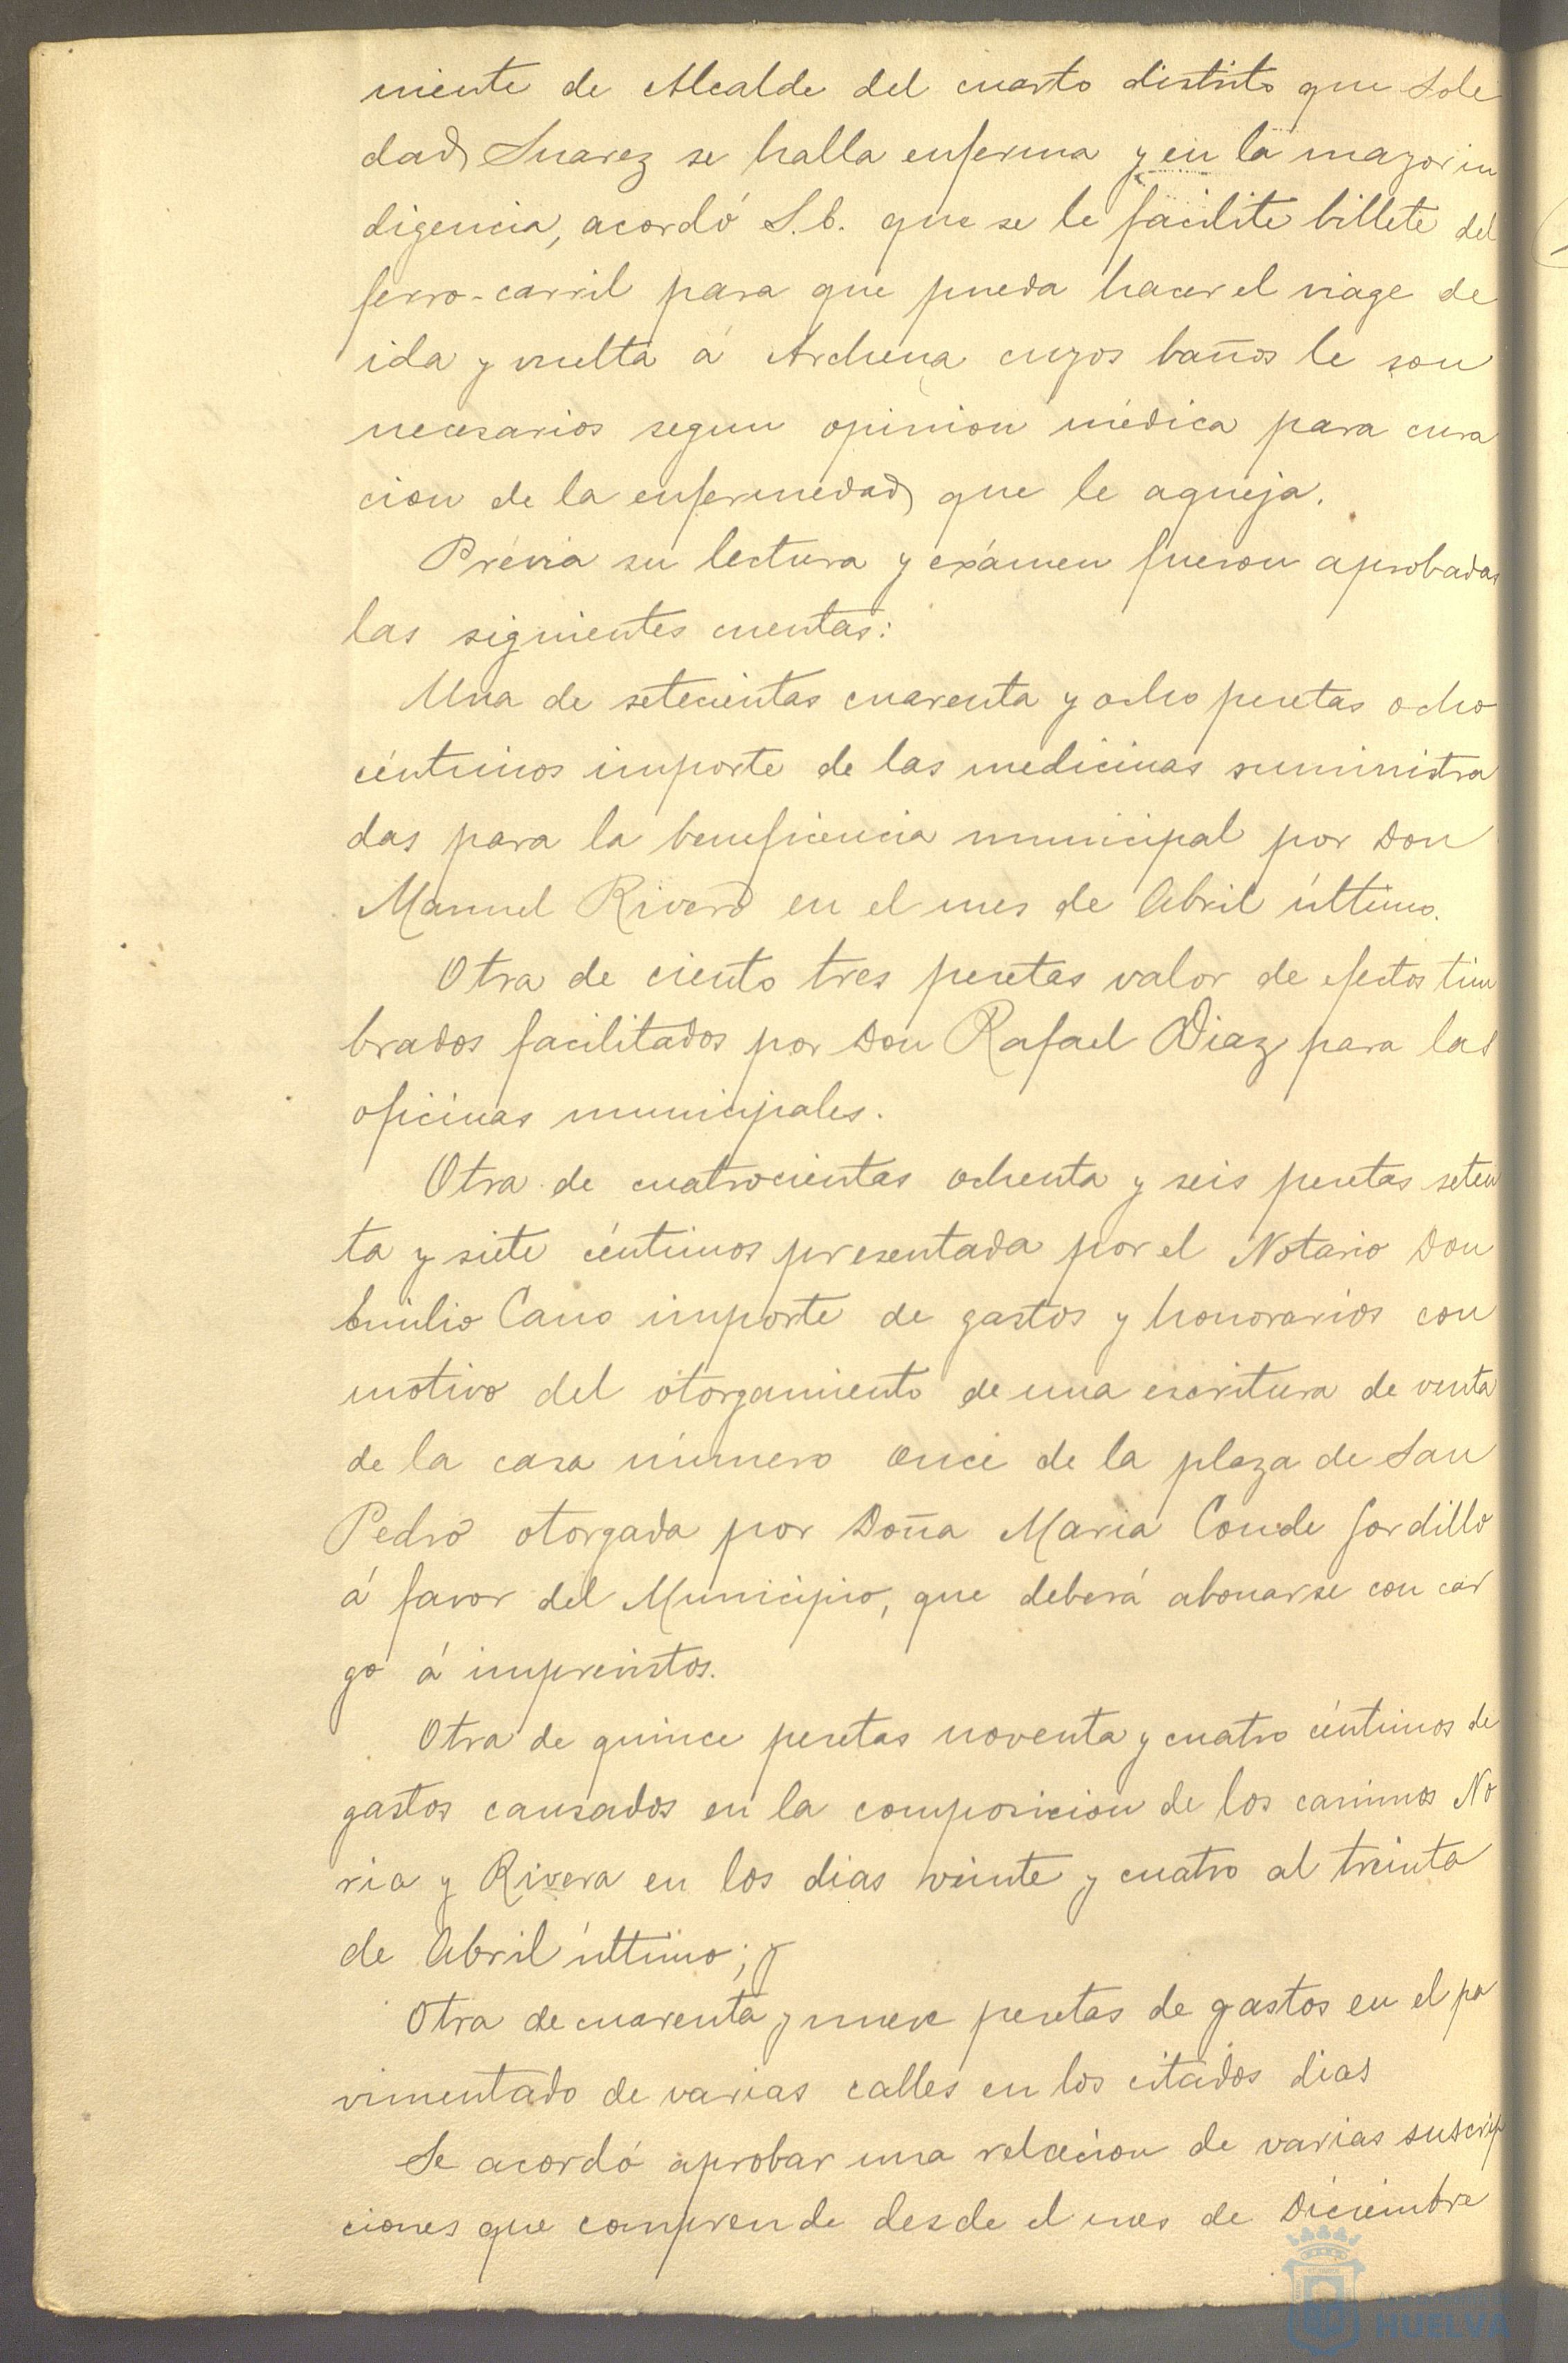 niente de Alcalde del cuarto distrito que Sole
dad Suarez se halla enferma y en la mayor in
digencia, acordó S.E. que se le facilite billete del
ferro-carril para que pueda hacer el viage de
ida y vuelta á Archena cuyos baños le son
necesarios segun opinion médica para cura
cion de la enfermedad que le aqueja.
Prévia su lectura y exámen fueron aprobadas
las siguientes cuentas:
Una de setecientas cuarenta y ocho pesetas ocho
céntimos importe de las medicinas suministra
das para la beneficencia municipal por Don
Manuel Rivero en el mes de Abril último.
Otra de ciento tres pesetas valor de efectos tim
brados facilitados por Don Rafael Diaz para las
oficinas municipales.
Otra de cuatrocientas ochenta y seis pesetas seten
ta y siete céntimos presentada por el Notario Don
Emilio Cano importe de gastos y honorarios con
motivo del otorgamiento de una escritura de venta
de la casa número once de la plaza de San
Pedro otorgada por Doña Maria Conde Gordillo
á favor del Municipio, que deberá abonarse con car
go á imprevistos.
Otra de quince pesetas noventa y cuatro céntimos de
gastos causados en la composicion de los caminos No
ria y Rivera en los dias veinte y cuatro al treinta
de Abril último; y
Otra de cuarenta y nueve pesetas de gastos en el pa
vimentado de varias calles en los citados dias
Se acordó aprobar una relacion de varias suscrip
ciones que comprende desde el mes de Diciembre
HUELVA